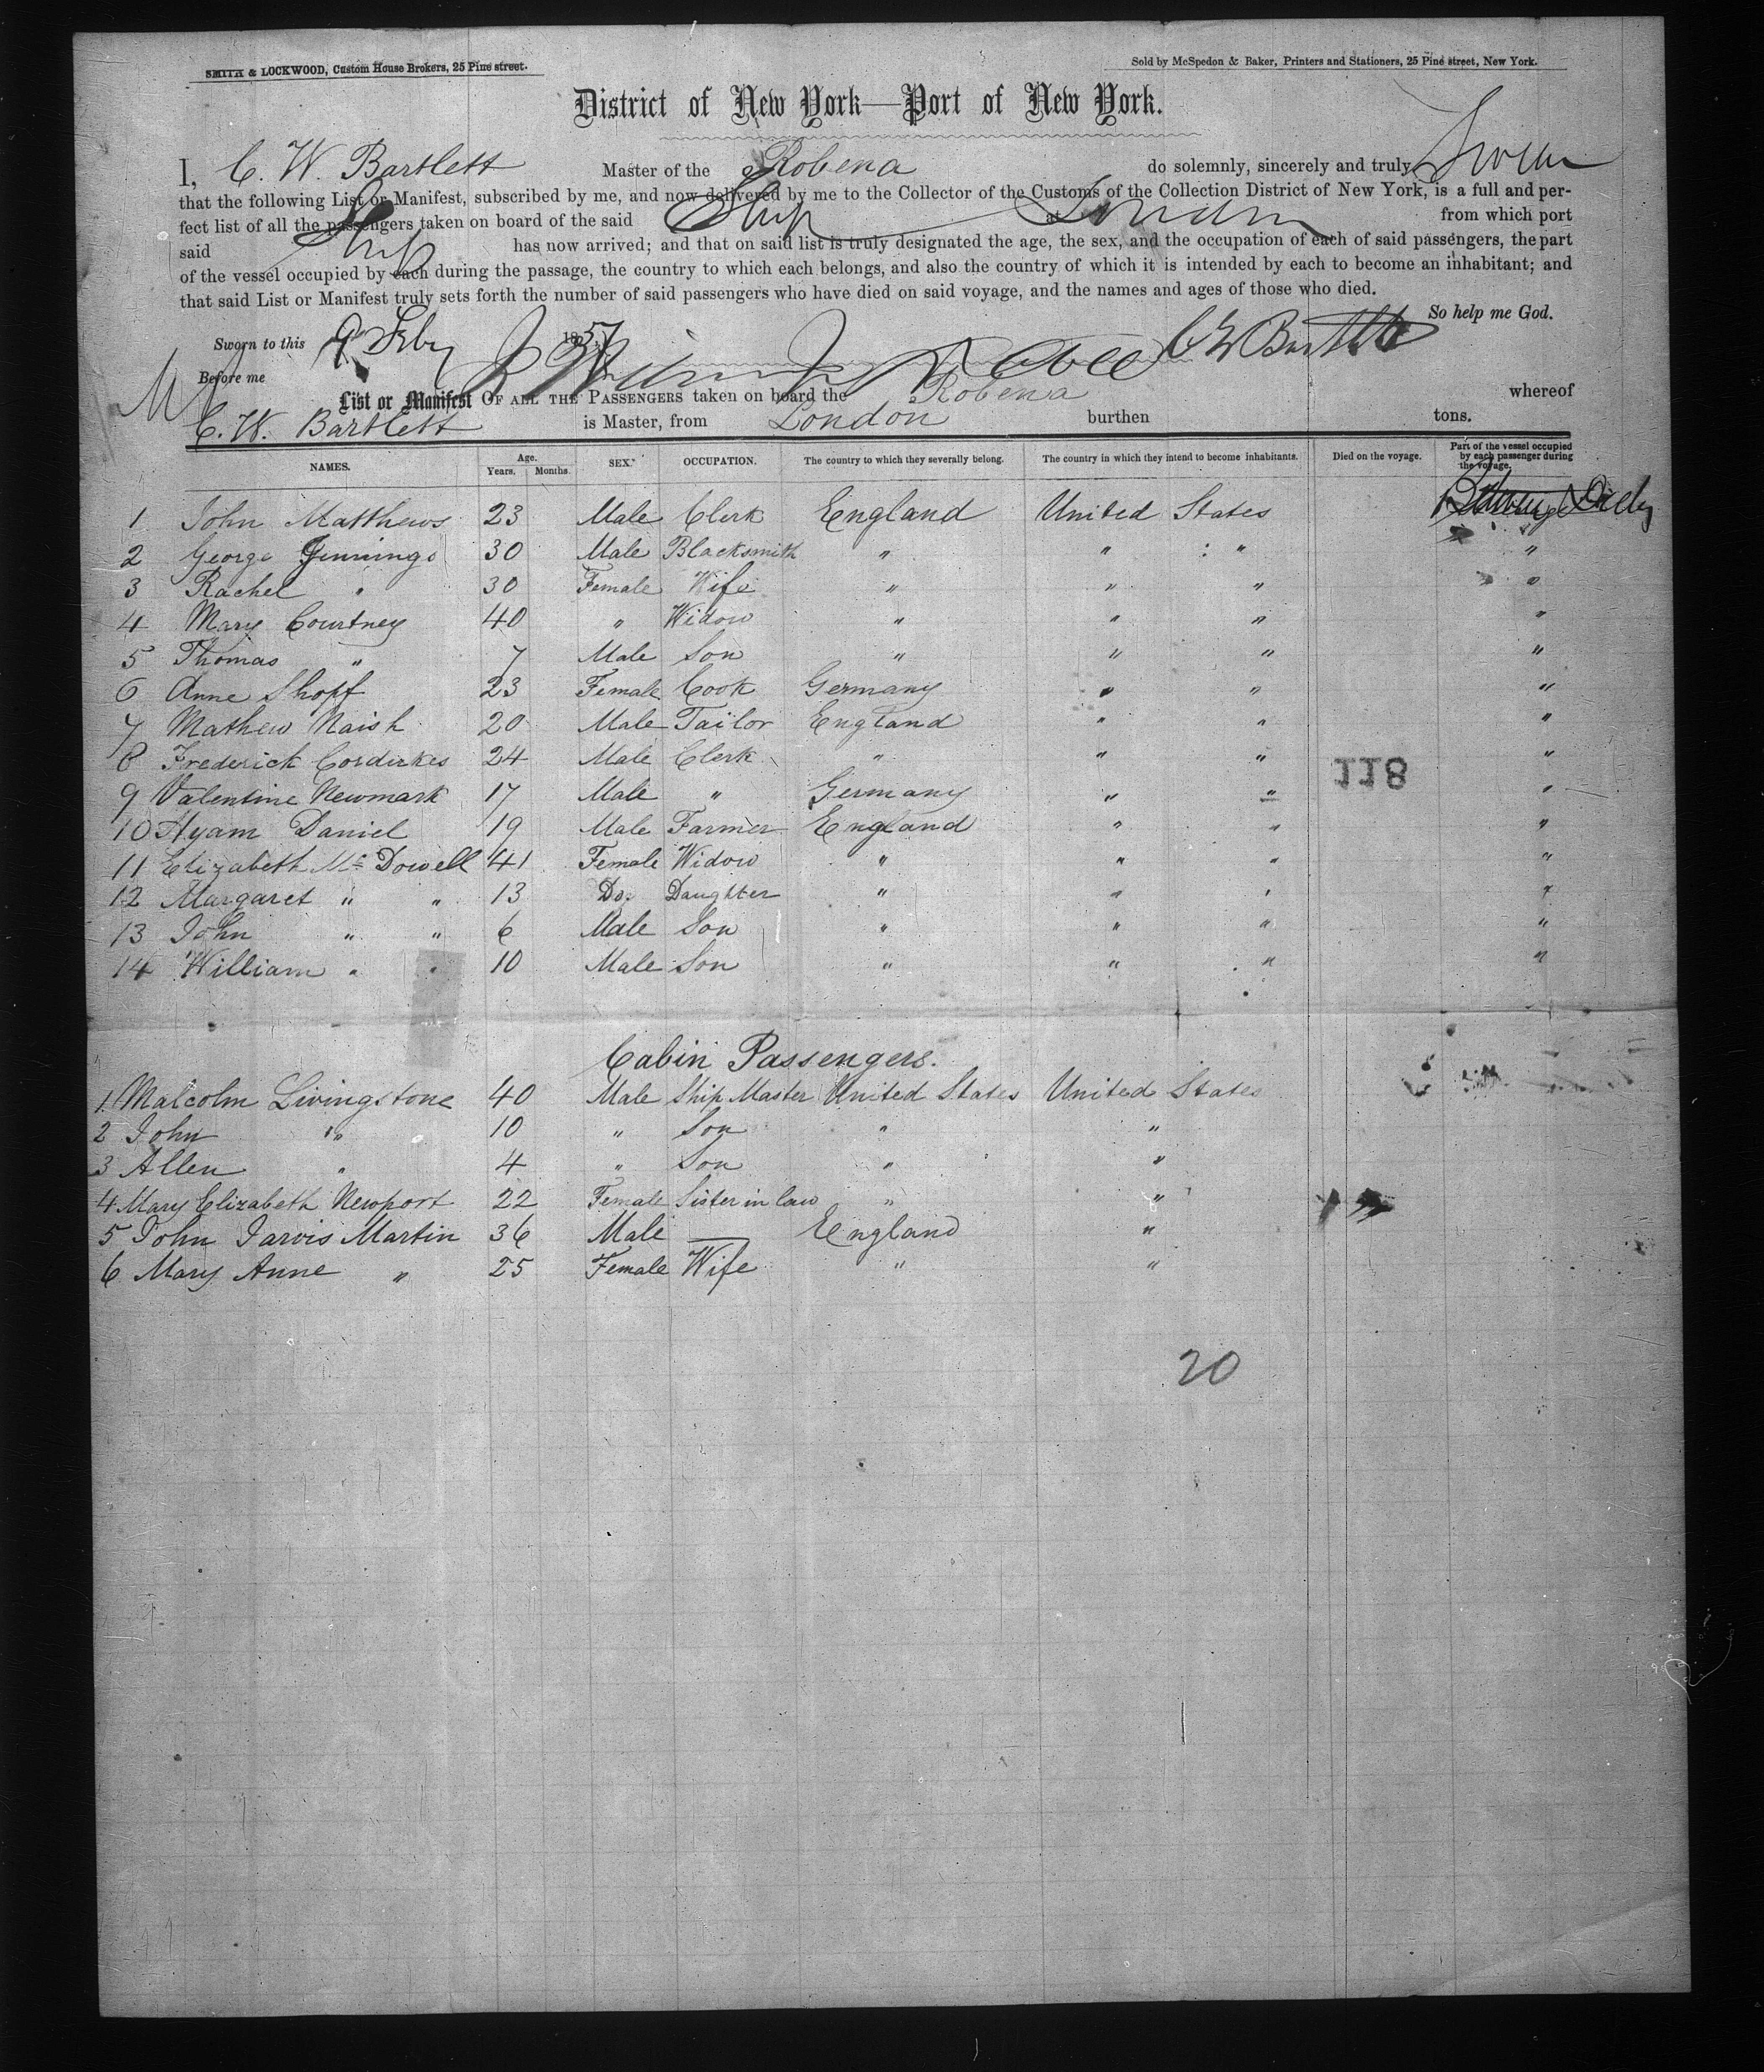 SMITH & LOCKWOOD, Custom House Brokers, 25 Pine street.
Sold by McSpedon & Baker, Printers and Stationers, 25 Pine street, New York.
District of New York—Port of New York.
I, C. W. Bartlett Master of the Robena do solemnly, sincerely and truly Swear
that the following List or Manifest, subscribed by me, and now delivered by me to the Collector of the Customs of the Collection District of New York, is a full and per-
fect list of all the passengers taken on board of the said Ship at London from which port
said Ship has now arrived; and that on said list is truly designated the age, the sex, and the occupation of each of said passengers, the part
of the vessel occupied by each during the passage, the country to which each belongs, and also the country of which it is intended by each to become an inhabitant; and
that said List or Manifest truly sets forth the number of said passengers who have died on said voyage, and the names and ages of those who died.
So help me God.
Sworn to this 9 Feby 1857 C W Bartlett
Before me
List or Manifest OF ALL THE PASSENGERS taken on board the Robena whereof
C. W. Bartlett is Master, from London burthen tons.
NAMES. Age. Years. Months. SEX. OCCUPATION. The country to which they severally belong. The country in which they intend to become inhabitants. Died on the voyage. Part of the vessel occupied by each passenger during the voyage.
1 John Matthews 23 Male Clerk England United States
2 George Jennings 30 Male Blacksmith " " " "
3 Rachel " 30 Female Wife " " " "
4 Mary Courtney 40 " Widow " " " "
5 Thomas " 7 Male Son " " " "
6 Anne Shopf 23 Female Cook Germany " " "
7 Mathew Naish 20 Male Tailor England " " "
8 Frederick Cordirkes 24 Male Clerk " " " "
9 Valentine Newmark 17 Male " Germany " " "
118
10 Hyam Daniel 19 Male Farmer England " " "
11 Elizabeth Mc Dowell 41 Female Widow " " " "
12 Margaret " " 13 Do. Daughter " " " "
13 John " " 6 Male Son " " " "
14 William " " 10 Male Son " " " "
Cabin Passengers.
1. Malcolm Livingstone 40 Male Ship Master United States United States
2 John " 10 " Son " "
3 Allen " 4 " Son " "
4 Mary Elizabeth Newport 22 Female Sister in law " "
5 John Jarvis Martin 36 Male — England "
6 Mary Anne " 25 Female Wife " "
20